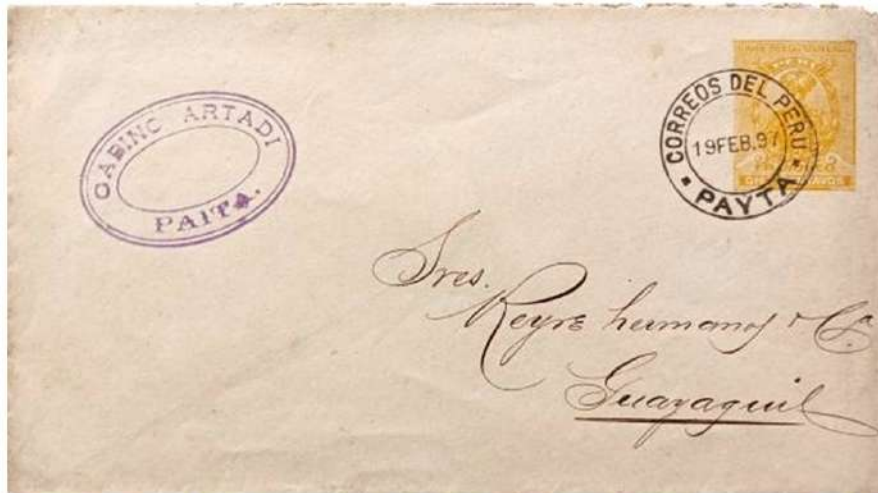 GABINO ARTADI
PAITA.
CORREOS DEL PERU
19 FEB. 97
PAYTA
Sres.
Reyre hermanos & Cª
Guayaquil